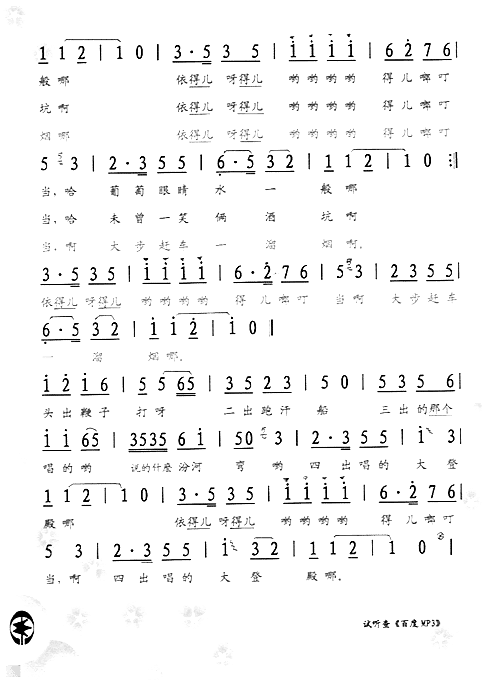 1 1 2 | 1 0 | 3·5 3 5 | i i i i | 6·2 7 6 |
般哪 依得儿 呀得儿 哟哟哟哟 得儿啷叮
坑啊 依得儿 呀得儿 哟哟哟哟 得儿啷叮
烟哪 依得儿 呀得儿 哟哟哟哟 得儿啷叮
5 3 | 2·3 5 5 | 6·5 3 2 | 1 1 2 | 1 0 :||
当,哈 葡萄眼睛 水一 般哪
当,哈 未曾一笑 俩酒 坑啊
当,啊 大步赶车 一溜 烟啊。
3·5 3 5 | i i i i | 6·2 7 6 | 5 3 | 2 3 5 5 |
依得儿 呀得儿 哟哟哟哟 得儿啷叮 当啊 大步赶车
6·5 3 2 | i i 2 | i 0 |
一溜 烟哪。
i 2 i 6 | 5 5 65 | 3 5 2 3 | 5 0 | 5 3 5 6 |
头出鞭子 打呀 二出跑汗 船 三出的那个
i i 65 | 3535 6 i | 50 3 | 2 3 5 5 | i 3 2 |
唱的哟 说的什麽 汾河 弯 哟 四出唱的 大登
1 1 2 | 1 0 | 3·5 3 5 | i i i i | 6·2 7 6 |
殿哪 依得儿 呀得儿 哟哟哟哟 得儿啷叮
5 3 | 2·3 5 5 | i 3 2 | 1 1 2 | 1 0 ||
当,啊 四出唱的 大登 殿哪。
试听查《百度MP3》